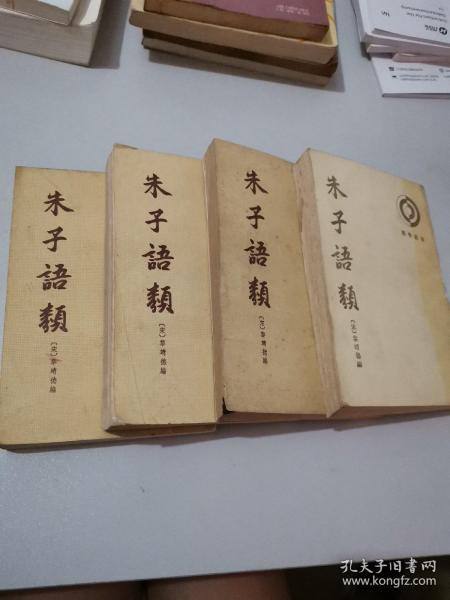 朱子語類
〔宋〕黎靖德編
朱子語類
〔宋〕黎靖德編
朱子語類
〔宋〕黎靖德編
朱子語類
〔宋〕黎靖德編
孔夫子旧书网
www.kongfz.com